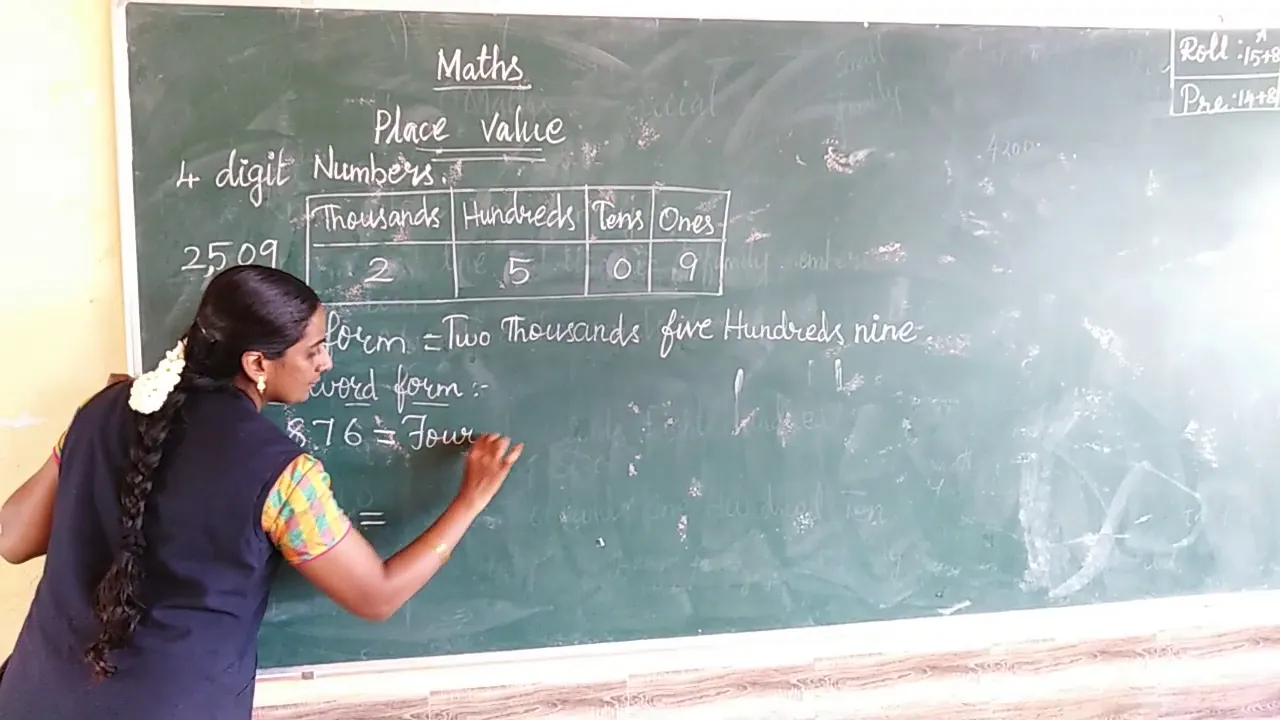 Maths
Place Value
4 digit Numbers.
Thousands Hundreds Tens Ones
2,509 2 5 0 9
form = Two Thousands five Hundreds nine
word form :-
876 = Four
=
Roll : 15+8
Pre : 14+8
4200